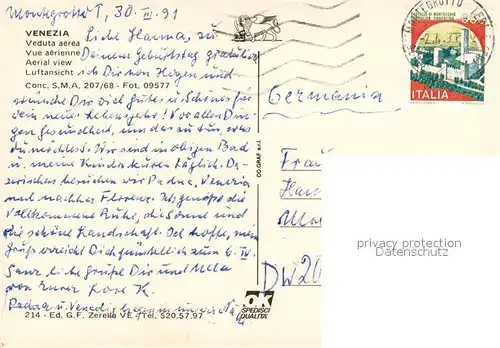 Montegrotto T, 30. III. 91
VENEZIA
Veduta aerea
Vue aérienne
Aerial view
Luftansicht
Conc. S.M.A. 207/68 - Fot. 09577
Liebe Hanna, zu
Deinem Geburtstag gratulier
ich Dir von Herzen und
wünsche Dir viel Gutes u. Schönes für
Dein neues Lebensjahr! Vor allen Din-
gen Gesundheit, um das zu tun, was
Du möchtest. Wir sind in obigen Bad
u. meine Kinder kuren täglich. Da-
zwischen besuchen wir Padua, Venezia
und nachher Florenz. Ich genieße die
vollkommene Ruhe, die Sonne und
die schöne Landschaft. Ich hoffe, mein
Gruß erreicht Dich pünktlich zum 6. IV.
Ganz liebe Grüße Dir und Ulla
von Eurer Rose K.
Padua u. Venedig liegen in unserer Nähe
214 - Ed. G.F. Zerella VE / Tel. 520.57.97
CO.GRAF s.r.l.
ok
SPEDISCI
QUALITÀ
ITALIA
Germania
Frau
DW 20
privacy protection
Datenschutz